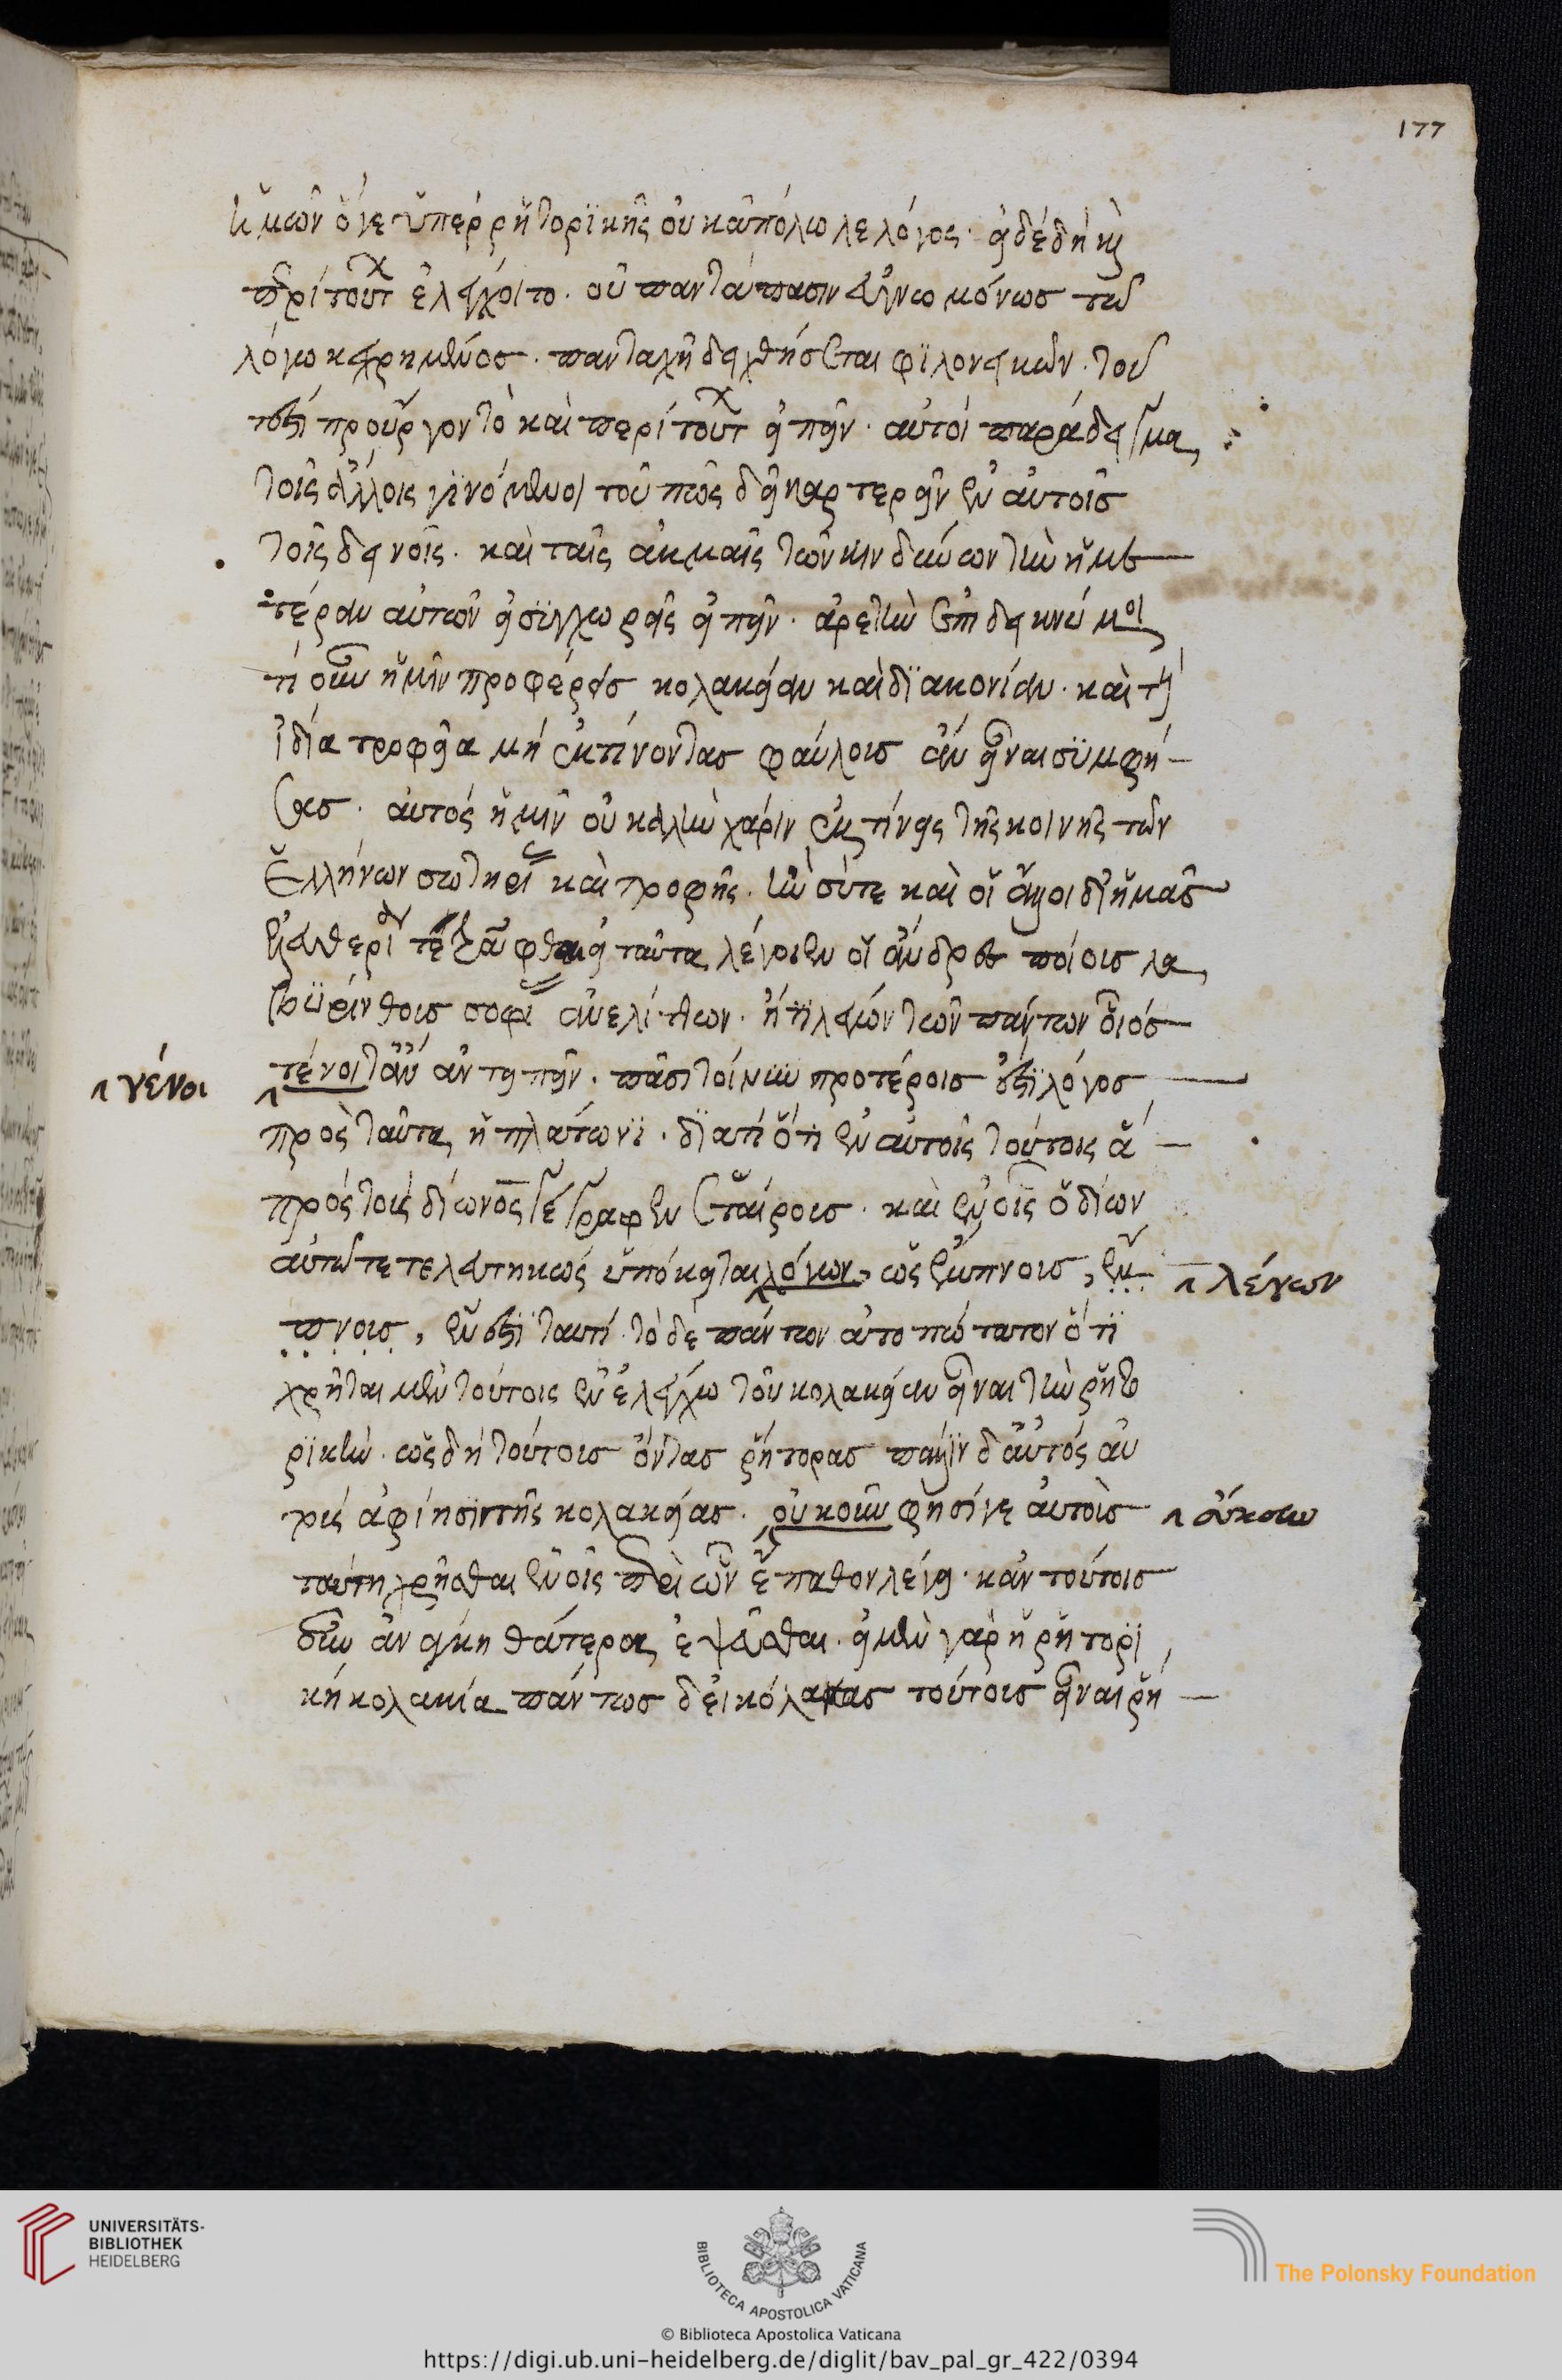 177
ἡμῶν ὅγε ὑπὲρ ῥητορϊκῆς οὐκ ἀπόλωλε λόγος· εἰ δὲ δὴ καὶ
περὶ τούτων ἐλέγχοιτο. οὐ παντάπασιν εὐγνωμόνως τῶ
λόγω κεχρημένος. πανταχῆ δειχθήσεται φϊλονεικῶν. τοῦ
τἐστὶ προὔργον τὸ καὶ περὶ τούτων εἰπεῖν. αὐτοὶ παράδειγμα
τοῖς ἄλλοις γϊνόμενοι τοῦ πῶς δεῖ καρτερεῖν ἐν αὐτοῖς
τοῖς δεινοῖς. καὶ ταῖς ἀκμαῖς τῶν κινδύνων τὴν ἡμε
τέραν αὐτῶν εἰ σϋγχωρεῖς εἰπεῖν. ἀρετὴν ἐπιδεικνύμενοι
τί οὖν ἡμῖν προφέρεις κολακείαν καὶ δϊακονίαν. καὶ τῆ
ἰδία τροφεῖα μὴ ἐκτίνοντας φαύλους ἂν εἶναι σϋμφή-
σας. αὐτὸς ἡμῖν οὐ καλὴν χάριν ἐκτίνεις τῆς κοινῆς τῶν
Ἑλλήνων σωτηρίας καὶ τροφῆς. ἣν σύτε καὶ οἱ ἄλλοι δι ἡμᾶς
ἐλευθερίαν τεθράφθαι εἰ ταῦτα λέγοιεν οἱ ἄνδρες ποίους λα
βϋρίνθους σοφίας ἀνελίττων. ἢ τϊ λέγων τῶν πάντων οἷός
τένοιτἂν ἀντειπεῖν. πᾶσι τοίνυν προτέροις ἐστϊ λόγος
^ γένοι
πρὸς ταῦτα ἢ πλάτωνϊ. δϊατί ὅτι ἐν αὐτοῖς τούτοις ἃ
πρὸς τοὺς δίωνος γέγραφεν ἑταίρους. καὶ ἐν οἷς ὁ δίων
αὐτῶ τετελευτηκὼς ὑπόκειται λόγων, ὡς ἔμπνους, ἐμ
^ λέγων
πνους, ἔνεστϊ ταυτί. τὸ δὲ πάντων ἀτοπώτατον ὅτϊ
χρῆται μὲν τούτοις ἐν ἐλέγχω τοῦ κολακείαν εἶναι τὴν ῥητο
ρϊκὴν. ὡς δὴ τούτους ὄντας ῥήτορας πάλϊν δ αὐτὸς αὐ
τοὺς ἀφίησϊ τῆς κολακείας. οὐκοῦν φησί γε αὐτοὺς
^ οὔκουν
ταύτη χρῆσθαι ἐν οἷς περὶ ὧν ἔπαθον λέγει. κἀν τούτοις
δυοῖν ἀνάγκη θάτερον ἐψεῦσθαι. εἰ μὲν γὰρ ἡ ῥητορϊ
κὴ κολακία πάντως δεῖ κόλακας τούτους εἶναι ῥή-
UNIVERSITÄTS-
BIBLIOTHEK
HEIDELBERG
BIBLIOTECA APOSTOLICA VATICANA
The Polonsky Foundation
© Biblioteca Apostolica Vaticana
https://digi.ub.uni-heidelberg.de/diglit/bav_pal_gr_422/0394